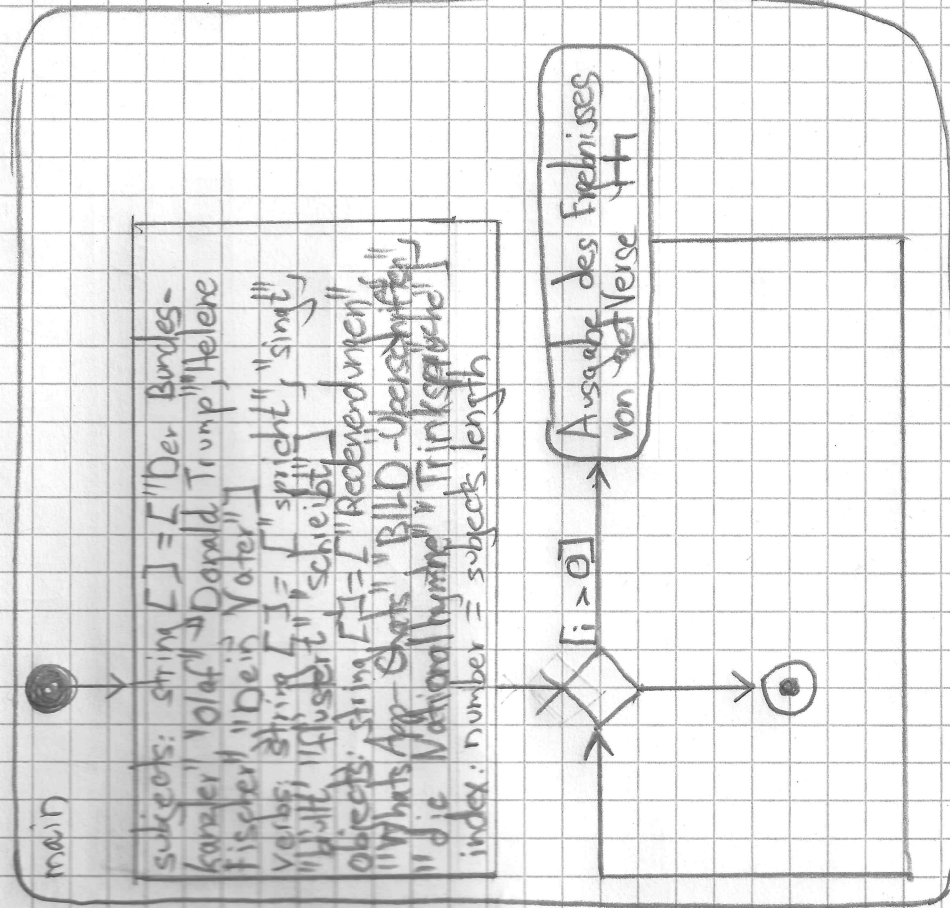 main
subjects: string [] = ["Der Bundes-
kanzler" "Olaf" "Donald Trump", "Helene
Fischer" "Dein Vater"]
verbs: string [] = ["spricht", "singt",
"flüstert" "schleibt"]
objects: string [] = ["Redewendungen"
"Whats App-Chats" "BILD-Überschriften",
"die Nationalhymne" "Trinksprüche"]
index: number = subjects.length
[i > 0]
Ausgabe des Ergebnisses
von getVerse